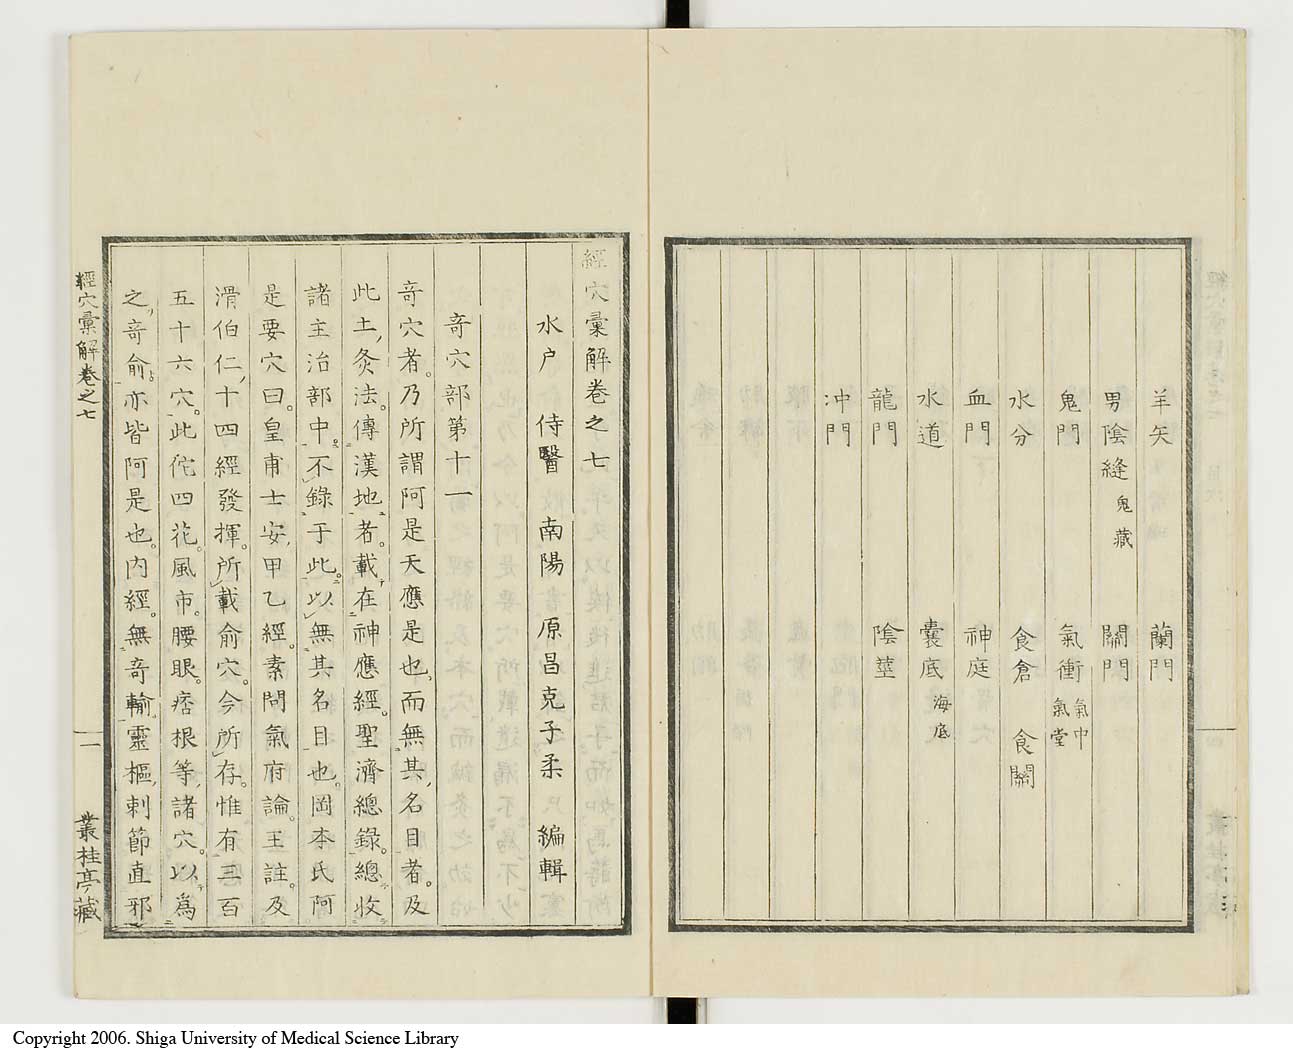 羊矢　蘭門
男陰縫 鬼藏　關門
鬼門　氣衝 氣中 氣堂
水分　食倉　食關
血門　神庭
水道　囊底 海底
龍門　陰莖
冲門
經穴彙解卷之七
水户　侍醫　南陽　原昌克子柔　編輯
竒穴部第十一
竒穴者。乃所謂阿是天應是也。而無其名目者。及
此土灸法。傳漢地者。載在神應經。聖濟總錄。總收
諸主治部中。不錄于此。以無其名目也。岡本氏阿
是要穴曰。皇甫士安甲乙經。素問氣府論。王註。及
滑伯仁十四經發揮。所載俞穴。今所存。惟有三百
五十六穴。此佗四花。風市。腰眼。痞根等諸穴。以爲
之竒俞。亦皆阿是也。内經。無竒輸。靈樞刺節直邪
經穴彙解卷之七
一
叢桂亭藏
Copyright 2006. Shiga University of Medical Science Library